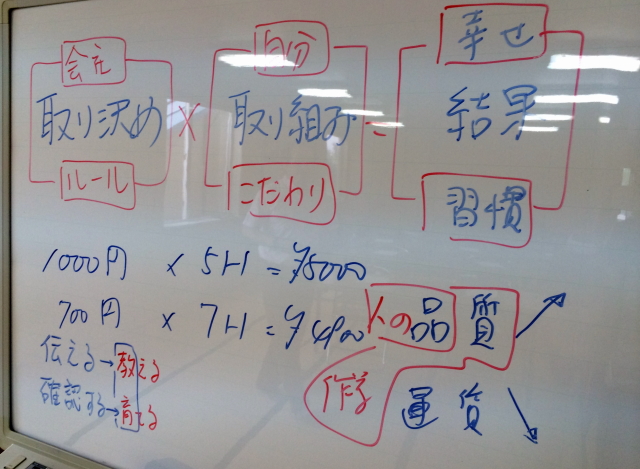 会社 自分 幸せ
取り決め × 取り組み = 結果
ルール こだわり 習慣
1000円 × 5H = ¥5000
700円 × 7H = ¥4900
人の品質 ↗
伝える→教える
確認する→育てる
作る 運賃 ↘